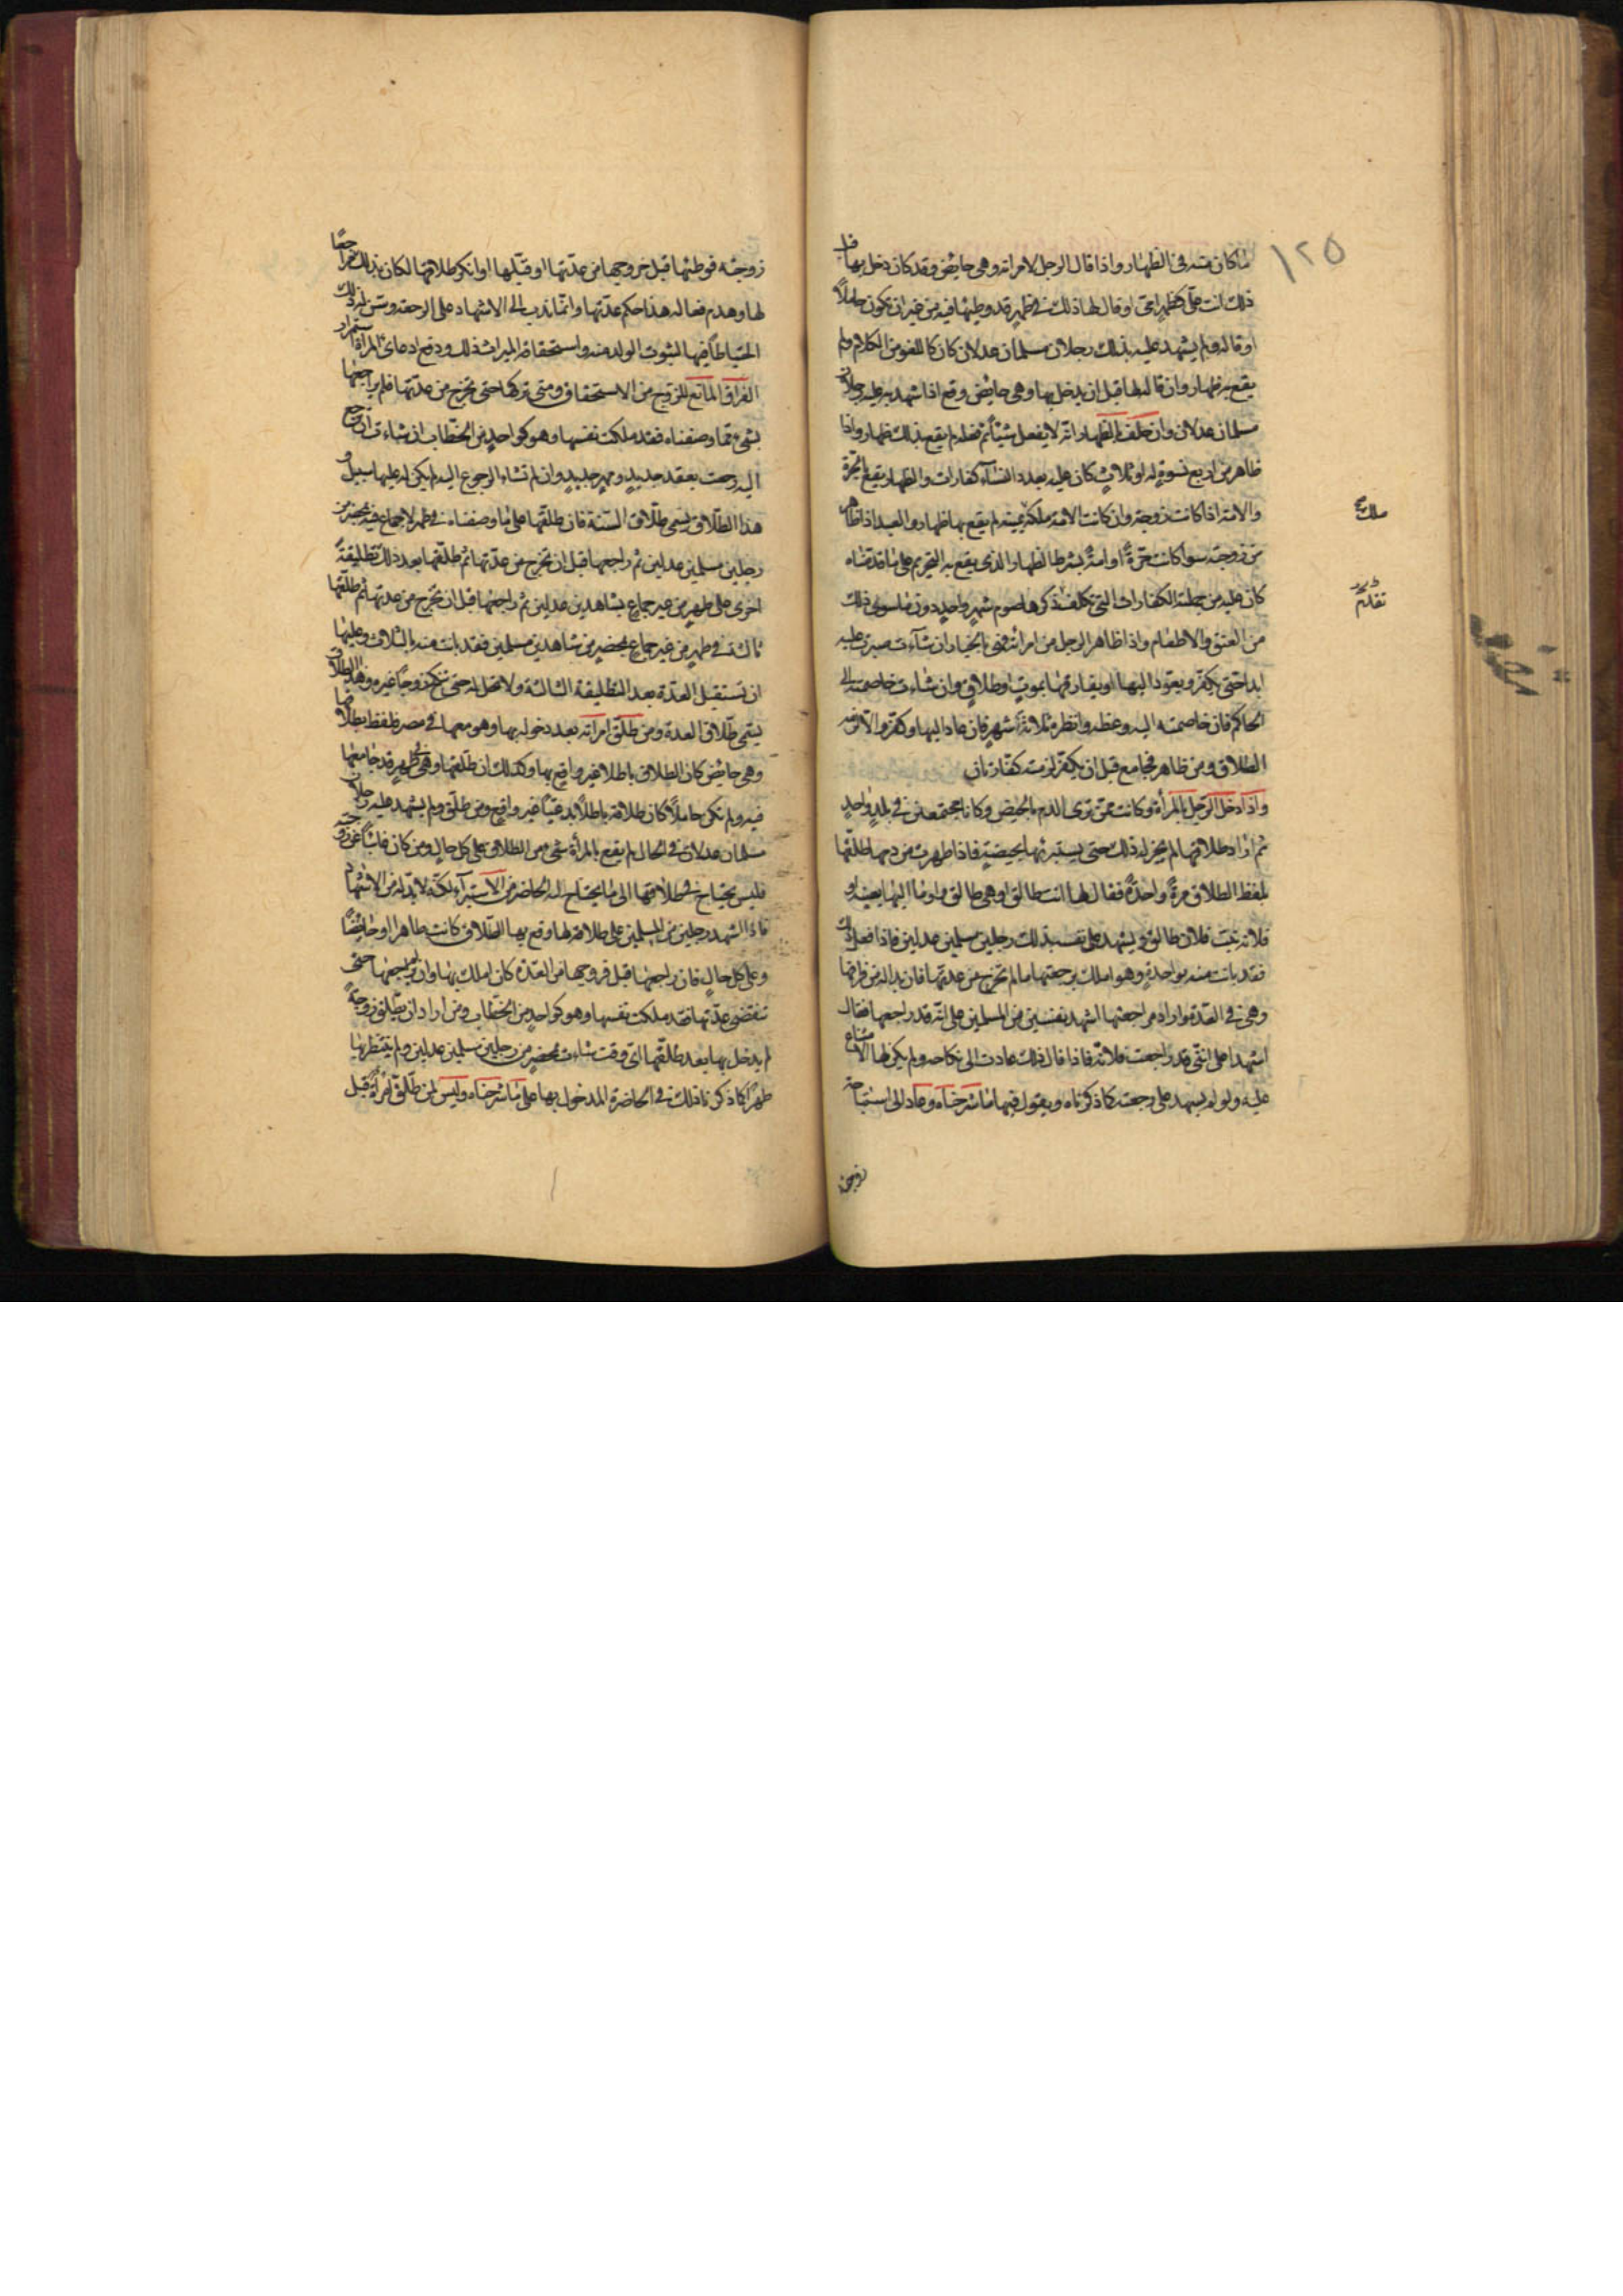 ١٢٥
ما كان منه فى الظهار واذا قال الرجل لامراته وهى حايض وقد كان دخل بها قبل
ذلك انت علّى كظهر امّى او قال لها ذلك فى طهر قد وطيها فيه من غير ان تكون حاملاً
او قاله ولم يشهد عليه بذلك رجلان مسلمان عدلان كان كاللغو من الكلام ولم
يقع به ظهار وان قال لها قبل ان يدخل بها وهى حايض وقع اذا شهد به عليه رجلان
مسلمان عدلان وان حلف بالظهار انّه لا يفعل شيئاً ثم فعله لم يقع بذلك ظهار واذا
ظاهر من اربع نسوة له او ثلاث كان عليه بعدد النساء كفارات والظهار يقع بالحرّة
والامة اذا كانت زوجة وان كانت الامة ملكة يمينه لم يقع بها ظهار والعبد اذا ظاهر
من زوجته سوا كانت حرّةً او امةً بشرط الظهار الذى يقع به التحريم على ما قدمناه
كان عليه من جملة الكفارات التى تكلف ذكرها صوم شهرٍ واحدٍ دون ما سوى ذلك
من العتق والاطعام واذا ظاهر الرجل من امراته فهى بالخيار ان شآءت صبرت عليه
ابدا حتى يكفّر ويعود اليها او يفارقها بموتٍ او طلاقٍ وان شاءت خاصمته الى
الحاكم فان خاصمته اليه وعظه وانظره ثلاثة اشهر فان عاد اليها وكفّر والّا الزمه
الطلاق ومن ظاهر فجامع قبل ان يكفّر لزمته كفّارتان
واذا دخل الرّجل بالمرأة وكانت ممّن ترى الدم بالحيض وكانا مجتمعين فى بلدٍ واحدٍ
ثم اراد طلاقها لم يجز له ذلك حتى يستبرئها بحيضةٍ فاذا طهرت من دمها طلّقها
بلفظ الطلاق مرةً واحدةً فقال لها انت طالق او هى طالق واوما اليها بعينها او
فلانة بنت فلان طالق ويشهد على نفسه بذلك رجلين مسلمين عدلين فاذا فعل ذلك
فقد بانت منه بواحدةٍ وهو املك برجعتها ما لم تخرج من عدتها فان بدا له من فراقها
وهى فى العدّة واراد مراجعتها اشهد نفسين من المسلمين على انّه قد راجعها فقال
اشهدا على انّنى قد راجعت فلانة فاذا قال ذلك عادت الى نكاحه ولم يكن لها الامتناع
عليه ولو لم يشهد على رجعته كما ذكرناه ويقول فيها ما شرحناه وعاد الى استباحة
زوجته
ملك
تقدم
زوجته فوطئها قبل خروجها من عدّتها او قبّلها او انكر طلاقها لكان بذلك مراجعًا
لها وهدم فعاله هذا حكم عدّتها وانّما ندب الى الاشهاد على الرجعة وسّن له ذلك
احتياطاً فيها لثبوت الولد منه واستحقاقه الميراث بذلك ودفع ادعاى المراة استمرار
الفراق المانع للزوج من الاستحقاق ومتى تركها حتى تخرج من عدّتها فلم يراجعها
بشىءٍ ممّا وصفناه فقد ملكت نفسها وهو كواحدٍ من الخطّاب ان شاءت ان ترجع
اليه رجعت بعقد جديدٍ ومهرٍ جديدٍ وان لم تشاء الرجوع اليه لم يكن له عليها سبيل و
هذا الطّلاق يسمى طلاق السّنة فان طلقها على ما وصفناه فى طهر لا جماع فيه بمحضر من
رجلين مسلمين عدلين ثم راجعها قبل ان تخرج من عدّتها ثم طلّقها بعد ذلك تطليقةً
اخرى على طهرٍ من غير جماع بشاهدين عدلين ثم راجعها قبل ان تخرج من عدتها ثم طلّقها
ثالثة فى طهرٍ من غير جماع بمحضرٍ من شاهدين مسلمين فقد بانت منه بالثلاث وعليها
ان تستقبل العدّة بعد التطليقة الثالثة ولا تحل له حتى تنكح زوجاً غيره وهذا الطلاق
يسمّى طلاق العدة ومن طلّق امراته بعد دخوله بها وهو معها فى مصر فلفظ بطلاقها
وهى حايض كان الطلاق باطلا غير واقعٍ بها وكذلك ان طلّقها وهى فى طهرٍ قد جامعها
فيه ولم تكن حاملاً كان طلاقه باطلاً بدعيّاً غير واقعٍ ومن طلّق ولم يشهد عليه رجلان
مسلمان عدلان فى الحال لم يقع بالمرأة شىء من الطلاق على كل حالٍ ومن كان غائباً عن زوجته
فليس يحتاج فى طلاقها الى ما يحتاج اليه الحاضر من الاستبراء لكنّه لا بدّ له من الاشهاد
فاذا اشهد رجلين من المسلمين على طلاقه لها وقع بها الطّلاق كانت طاهرا او حايضًا
وعلى كلّ حالٍ فان راجعها قبل خروجها من العدّة كان املك بها وان لم يراجعها حتّى
تنقضى عدّتها فقد ملكت نفسها وهو كواحدٍ من الخطّاب ومن اراد ان يطلق زوجةً
لم يدخل بها بعد طلّقها اىّ وقت شاءت بمحضرٍ من رجلين مسلمين عدلين ولم ينتظر بها
طهرًا كما ذكرنا ذلك فى الحاضرة المدخول بها على ما شرحناه وليس لمن طلّق امرأةً قبل